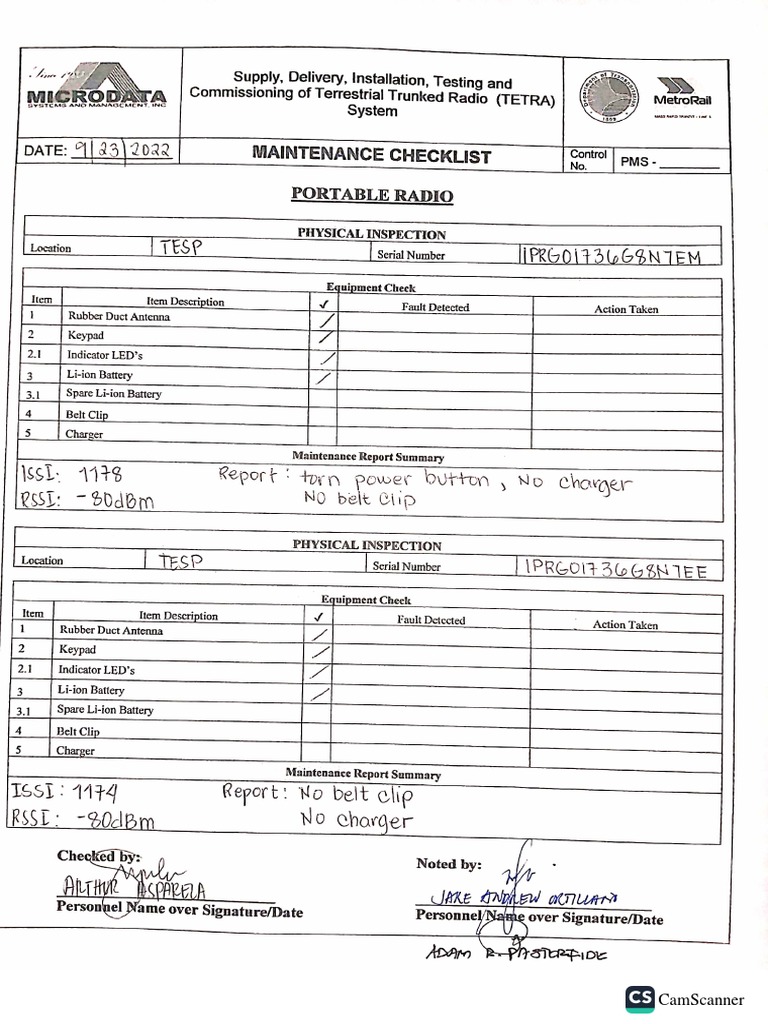 Since 19
MICRODATA
SYSTEMS AND MANAGEMENT, INC
Supply, Delivery, Installation, Testing and
Commissioning of Terrestrial Trunked Radio (TETRA)
System
Department of Transportation
1899
MetroRail
MASS RAPID TRANSIT - LINE 3
DATE: 9/23/2022
MAINTENANCE CHECKLIST
Control No. PMS - ________
PORTABLE RADIO
PHYSICAL INSPECTION
Location TESP Serial Number 1PRG01736G8N7EM
Equipment Check
Item Item Description ✓ Fault Detected Action Taken
1 Rubber Duct Antenna /
2 Keypad /
2.1 Indicator LED's /
3 Li-ion Battery /
3.1 Spare Li-ion Battery
4 Belt Clip
5 Charger
Maintenance Report Summary
ISSI: 1178 Report: torn power button, No charger
RSSI: -80dBm NO belt clip
PHYSICAL INSPECTION
Location TESP Serial Number 1PRG01736G8N7EE
Equipment Check
Item Item Description ✓ Fault Detected Action Taken
1 Rubber Duct Antenna /
2 Keypad /
2.1 Indicator LED's /
3 Li-ion Battery /
3.1 Spare Li-ion Battery
4 Belt Clip
5 Charger
Maintenance Report Summary
ISSI: 1174 Report: No belt clip
RSSI: -80dBm No charger
Checked by: Noted by:
ARTHUR ASPARELA JAKE ANDREW ORTILLANO
Personnel Name over Signature/Date Personnel Name over Signature/Date
ADAM R.
CS CamScanner